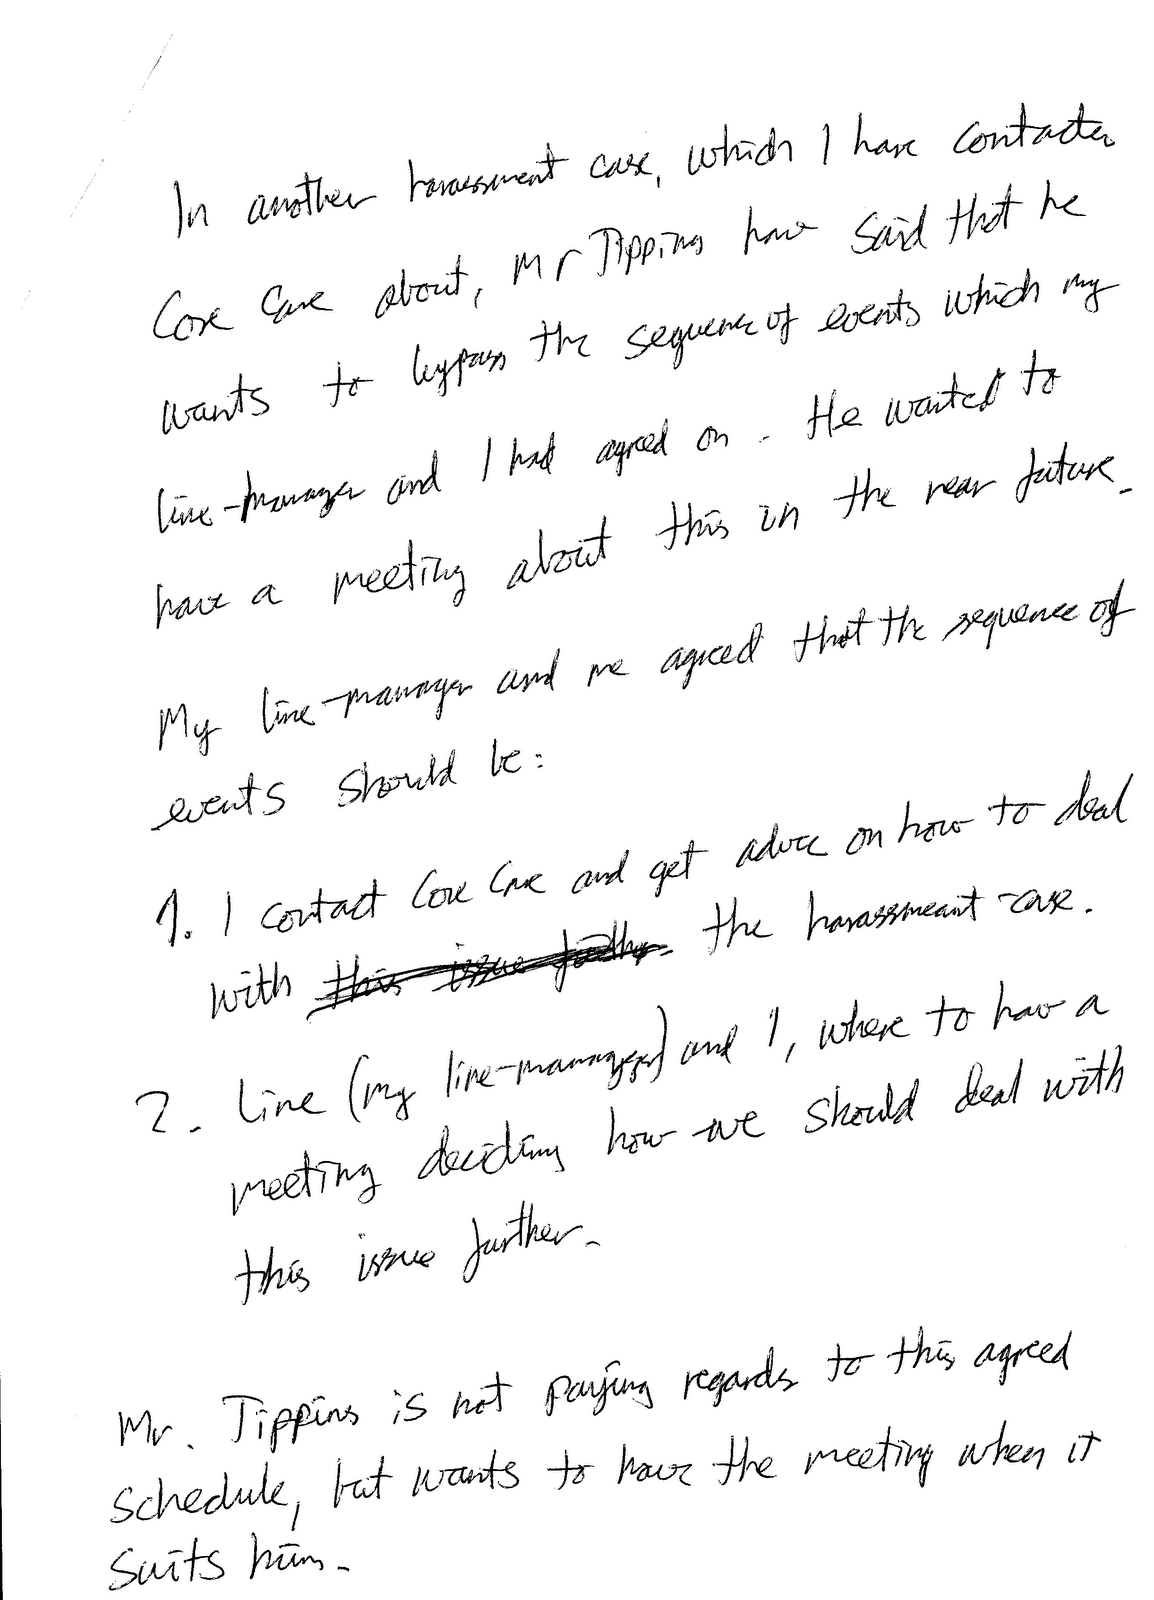 In another harassment case, which I have contacted
Core Care about, Mr Tippins have said that he
wants to bypass the sequence of events which my
line-manager and I had agreed on. He wanted to
have a meeting about this in the near future.
My line-manager and me agreed that the sequence of
events should be:
1. I contact Core Care and get advice on how to deal
with this issue further. the harassmeant case.
2. Line (my line-manager) and I, where to have a
meeting deciding how we should deal with
this issue further.
Mr. Tippins is not paying regards to this agreed
schedule, but wants to have the meeting when it
suits him.